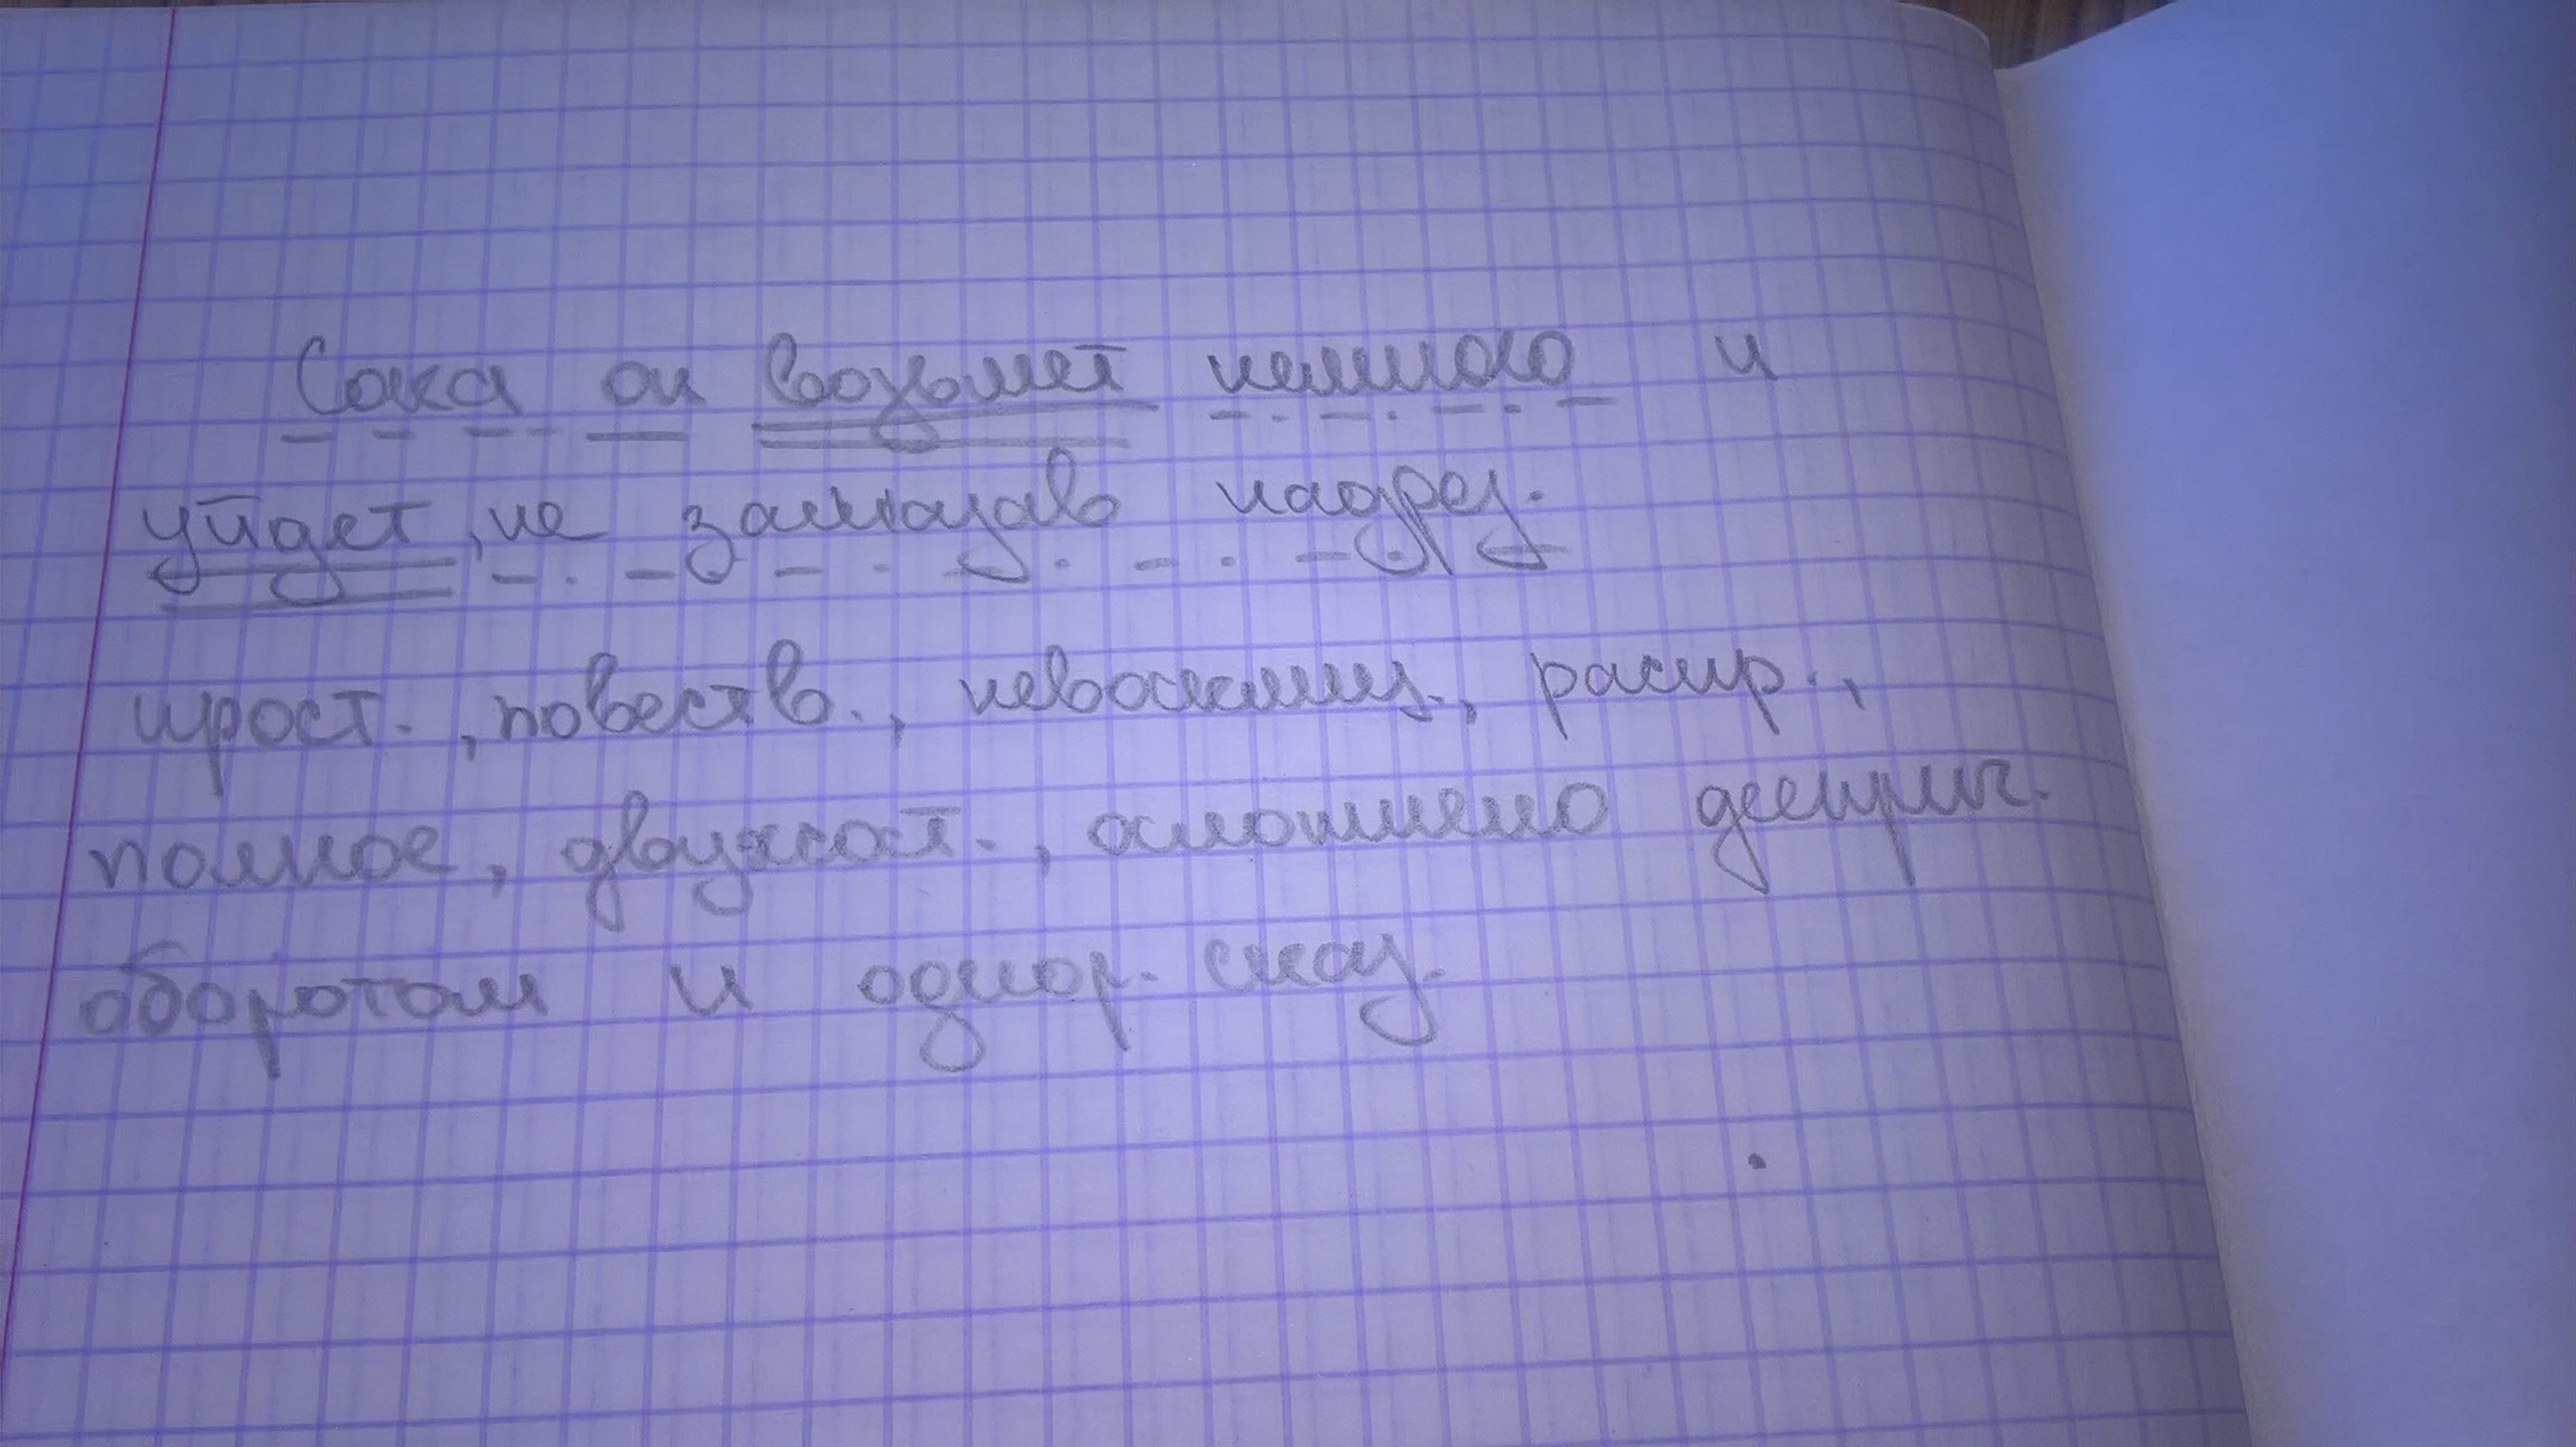 Сока он возьмет немного и
уйдет, не замазав надрез.
прост., повеств., невосклиц., распр.,
полное, двухсост., осложнено дееприч.
оборотом и однор. сказ.